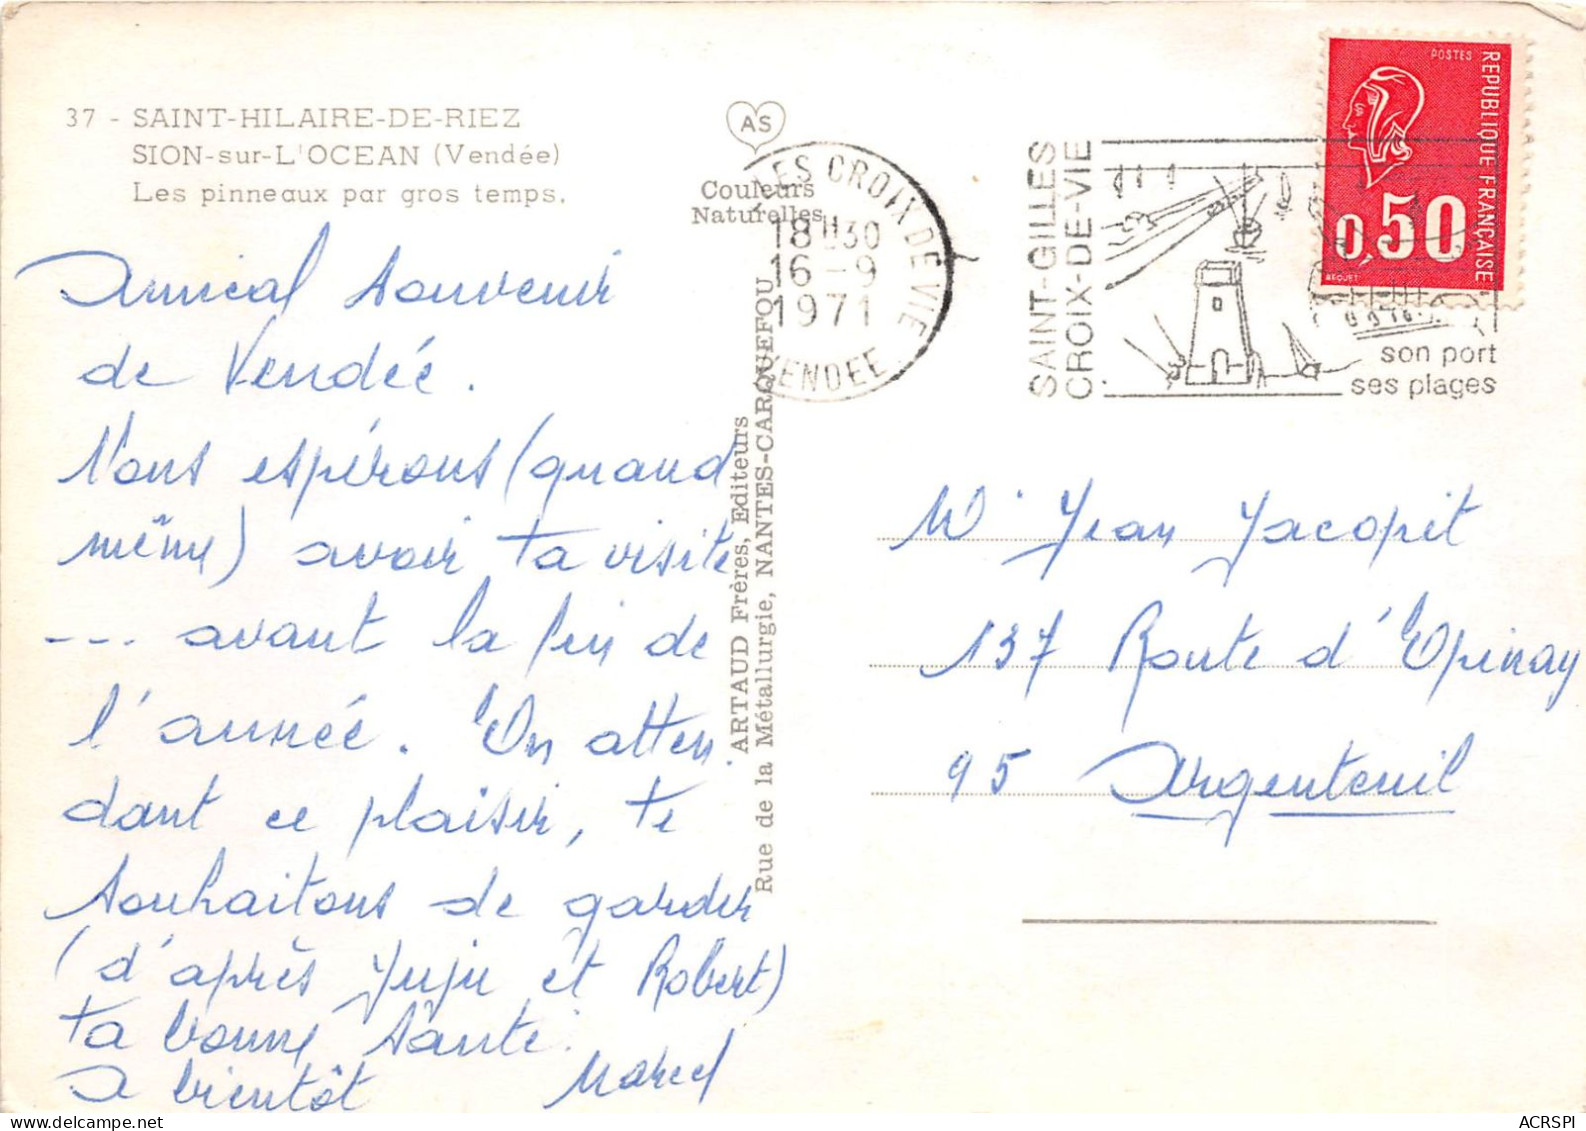 37 - SAINT-HILAIRE-DE-RIEZ
SION-sur-L'OCEAN (Vendée)
Les pinneaux par gros temps.
Amical souvenir
de Vendée.
Nous espérons (quand
même) avoir ta visite
--- avant la fin de
l'année. En atten
dant ce plaisir, te
souhaitons de garder
(d'après Juju et Robert)
ta bonne santé.
A bientôt Marcel
AS
Couleurs
Naturelles
ARTAUD Frères, Editeurs
Rue de la Métallurgie, NANTES-CARQUEFOU
LES CROIX DE VIE
18H30
16-9
1971
VENDEE
SAINT-GILLES
CROIX-DE-VIE
son port
ses plages
POSTES
REPUBLIQUE FRANÇAISE
0,50
BEQUET
Mr Jean Jacopit
137 Route d'Epinay
95 Argenteuil
ACRSPI